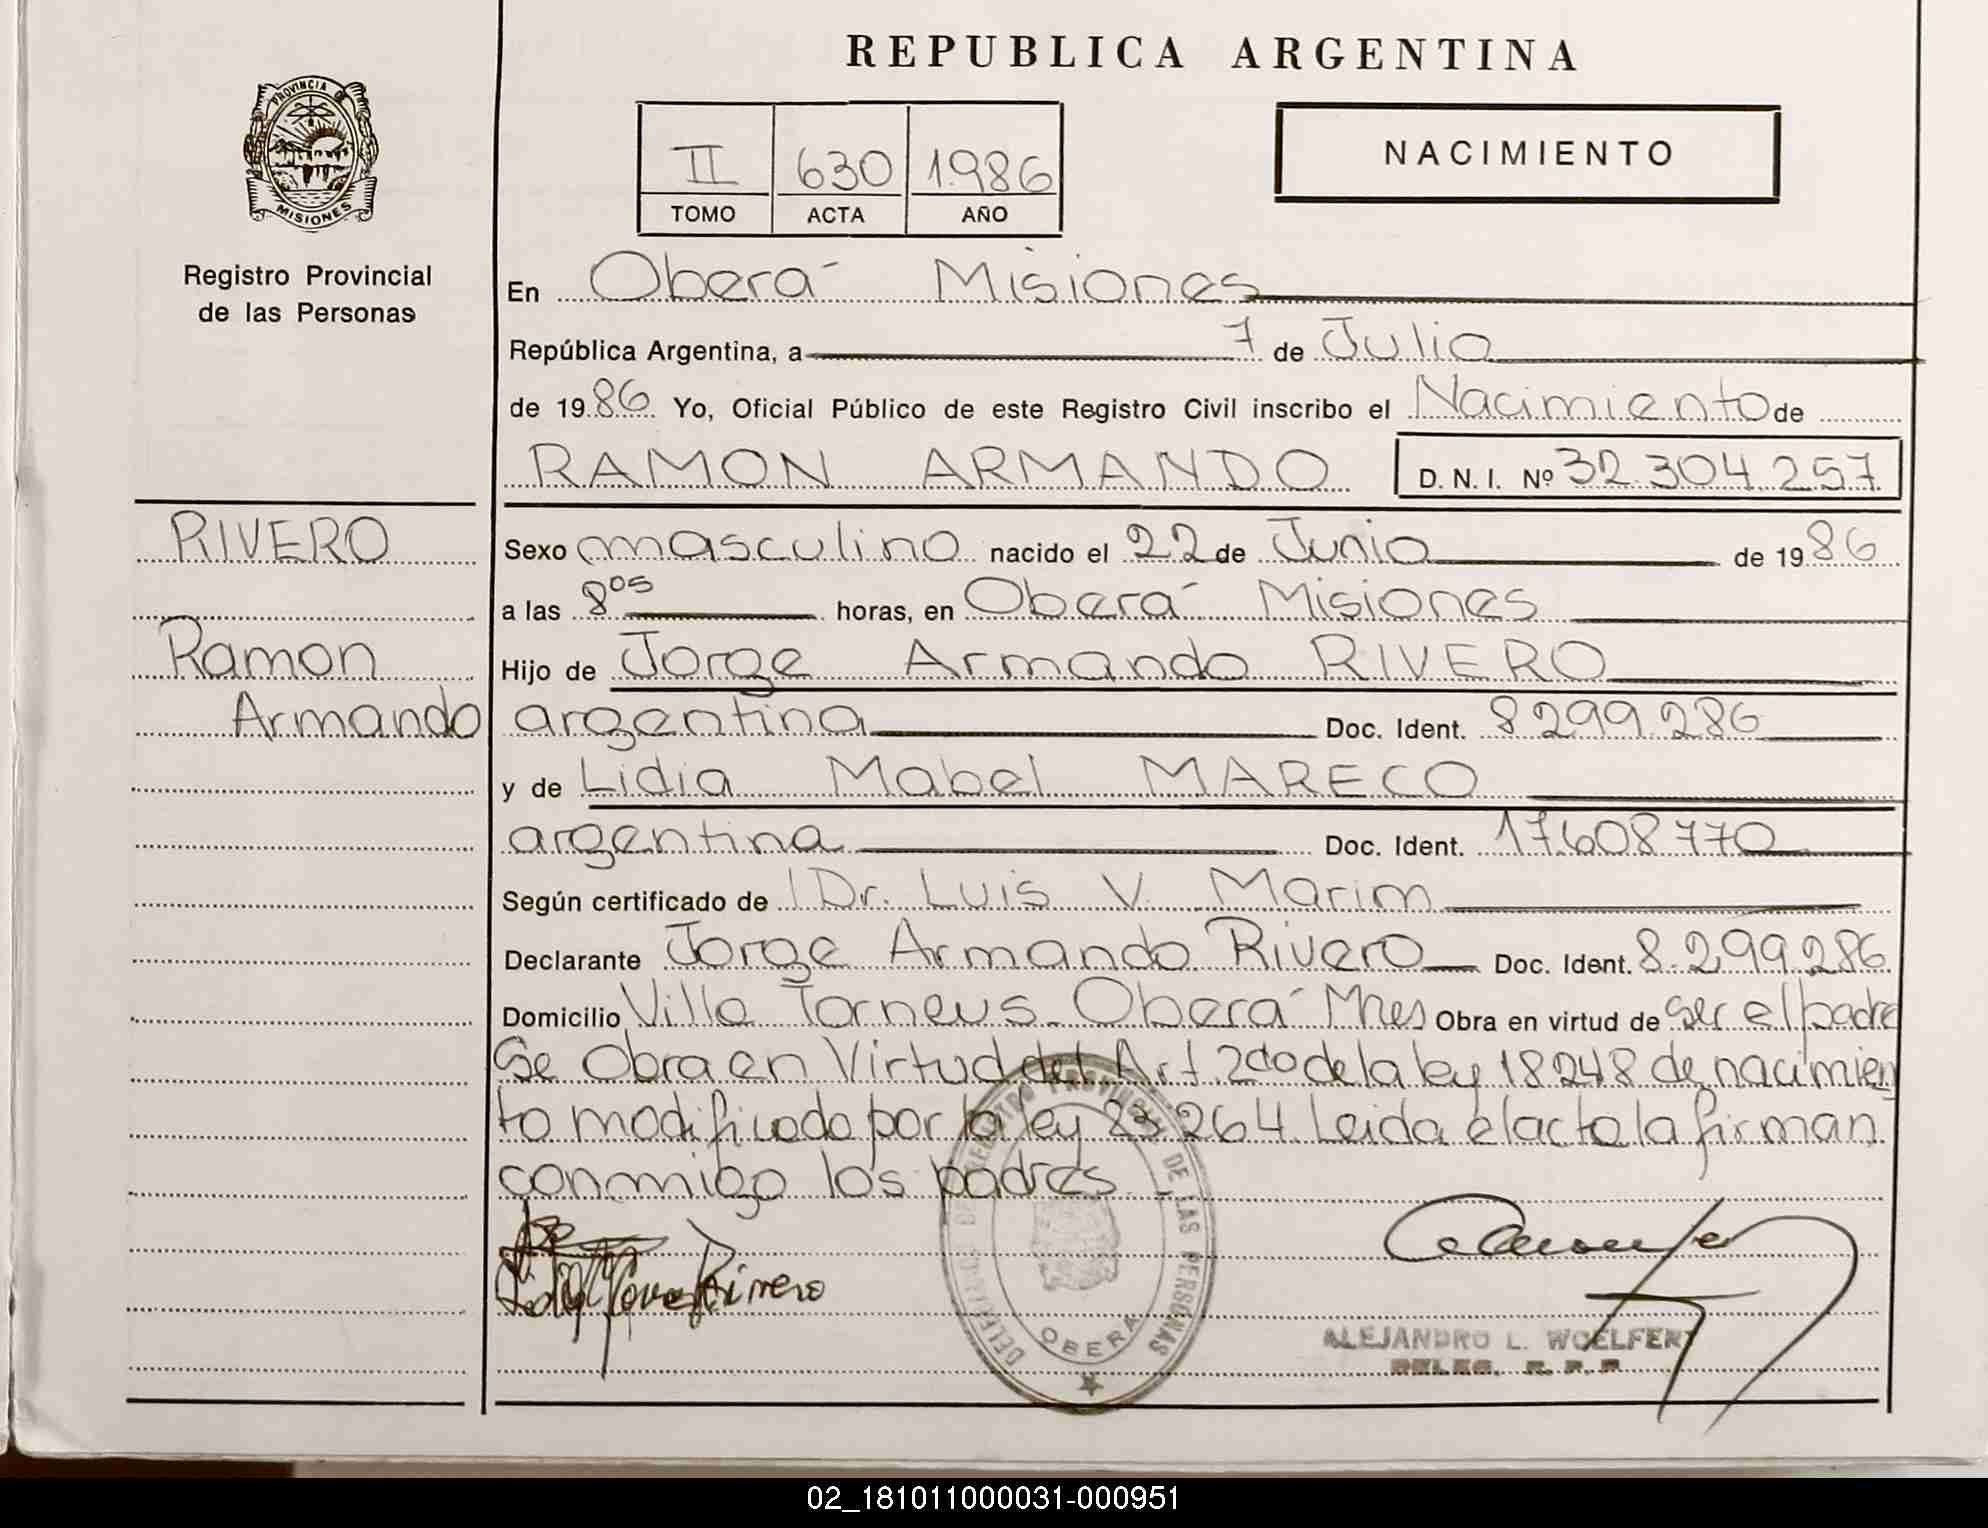 REPUBLICA ARGENTINA
PROVINCIA DE
MISIONES
Registro Provincial
de las Personas
II 630 1.986
TOMO ACTA AÑO
NACIMIENTO
En Oberá Misiones
República Argentina, a 7 de Julio
de 1986 Yo, Oficial Público de este Registro Civil inscribo el Nacimiento de
RAMON ARMANDO D. N. I. Nº 32.304.257
RIVERO
Ramon
Armando
Sexo masculino nacido el 22 de Junio de 1986
a las 8 05 horas, en Oberá Misiones
Hijo de Jorge Armando RIVERO
argentina Doc. Ident. 8.299.286
y de Lidia Mabel MARECO
argentina Doc. Ident. 17.608.770
Según certificado de Dr. Luis V. Marim
Declarante Jorge Armando Rivero Doc. Ident. 8.299.286
Domicilio Villa Torneus. Oberá Mnes Obra en virtud de ser el padre
Se Obra en Virtud del Art. 2do de la ley 18248 de nacimien
to modificado por la ley 23.264. Leida el acta la firman
conmigo los padres
REGISTRO PROVINCIAL DE LAS PERSONAS
OBERA
ALEJANDRO L. WOELFERT
DELEG. R. P. P.
02_181011000031-000951